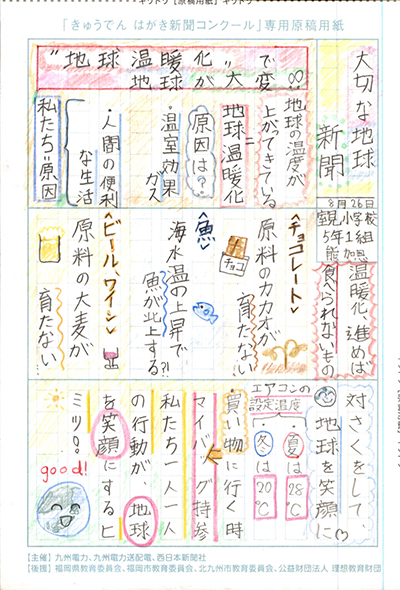 「きゅうでん はがき新聞コンクール」専用原稿用紙
大切な地球
新聞
8月26日
室見小学校
5年1組
"地球温暖化"
地球が大
で変!!
地球の温度が
上がってきている
地球温暖化
原因は?
・温室効果
ガス
・人間の便利
な生活
私たち=原因
温暖化進めば、
食べられないもの
<チョコレート>
原料のカカオが
育たない
チョコ
<魚>
海水温の上昇で
魚が北上する?!
<ビール、ワイン>
原料の大麦が
育たない
対さくをして、
地球を笑顔に♡
エアコンの
設定温度
夏は28℃
冬は20℃
買い物に行く時
マイバッグ持参
私たち一人一人
の行動が、地球
を笑顔にするヒ
ミツ!
good!
【主催】九州電力、九州電力送配電、西日本新聞社
【後援】福岡県教育委員会、福岡市教育委員会、北九州市教育委員会、公益財団法人 理想教育財団